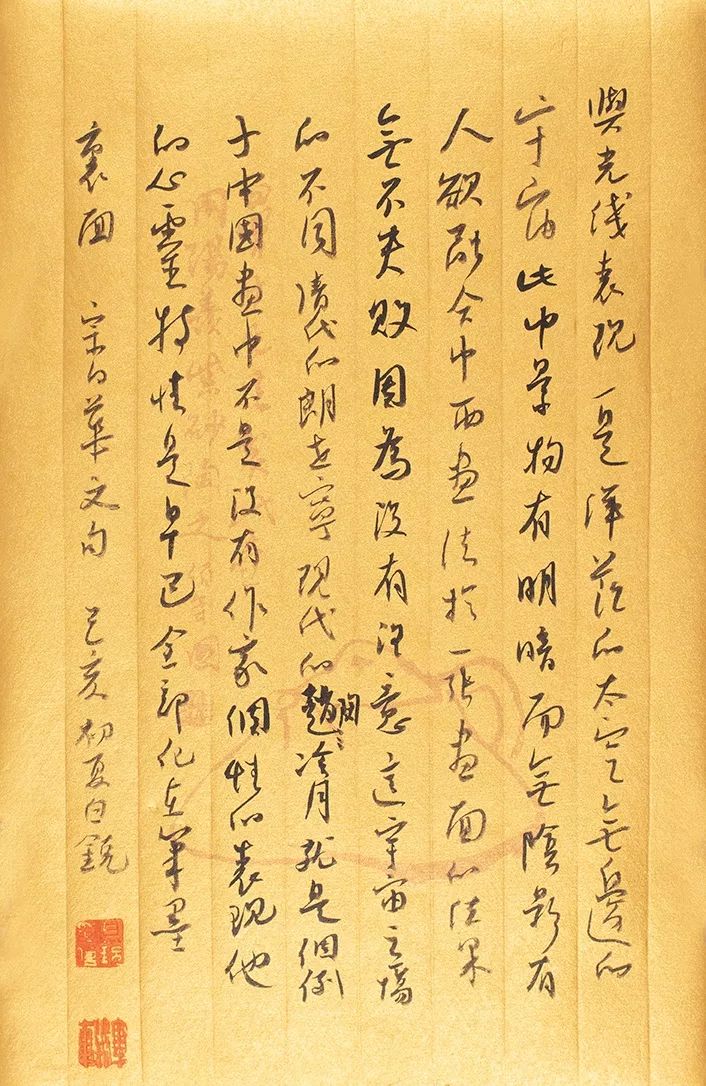 與光线表现一是渾茫的太空無邊的
宇宙此中景物有明暗而無陰影有
人欲融合中西画法於一张画面的结果
無不失败因為没有注意這宇宙立場
的不同清代的朗世寧现代的趙陶冷月就是個例
子中國画中不是没有作家個性的表现他
的心靈特性是早已全部化在筆墨
裏面 宗白華文句 己亥初夏白